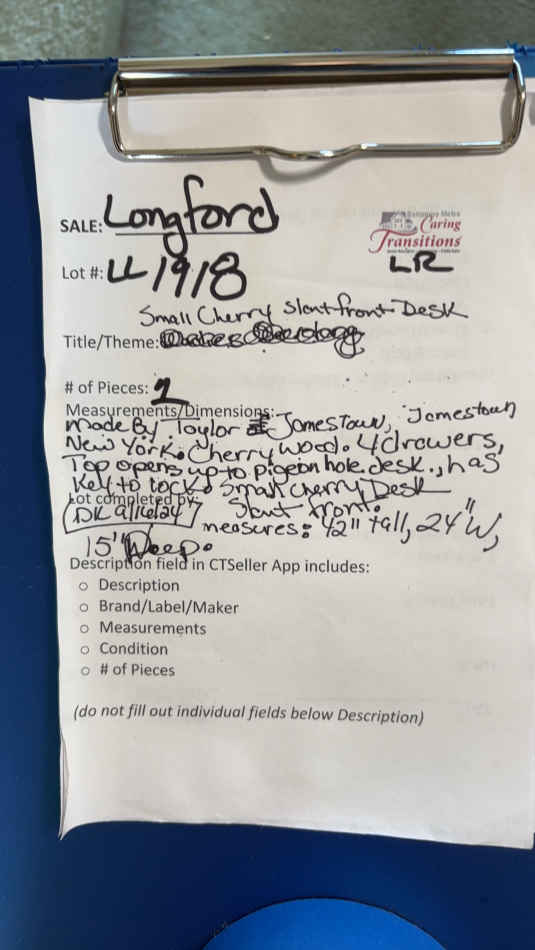 SALE: Longford
Baltimore Metro
Caring
Transitions
LR
Lot #: LL1918
Small Cherry Slantfront Desk
Title/Theme:
# of Pieces: 1
Measurements/Dimensions:
Made By Taylor Jamestown, Jamestown
New York. Cherry Wood. 4 drawers,
Top opens up to pigeon hole desk., has
Key to lock. Small Cherry Desk
Lot completed by: Slant front.
DK 9/16/24 measures: 42" tall, 24" W,
15" Deep.
Description field in CTSeller App includes:
○ Description
○ Brand/Label/Maker
○ Measurements
○ Condition
○ # of Pieces
(do not fill out individual fields below Description)